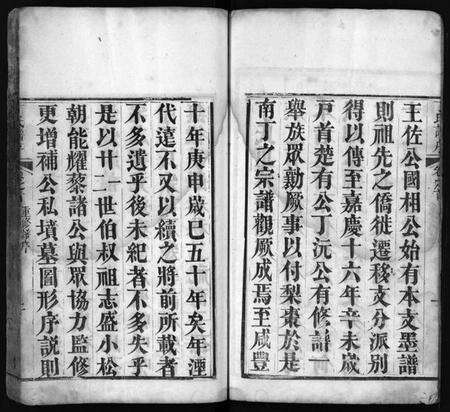 王佐公國相公始有本支墨譜
則祖先之僑徙遷移支分派別
得以傳至嘉慶十六年辛未歲
戸首楚有公丁沅公有修譜一
舉族眾勷厥事以付梨棗於是
南丁之宗譜觀厥成焉至咸豐
十年庚申歲巳五十年矣年湮
代遠不又以續之將前所載者
不多遺乎後未紀者不多失乎
是以廿二世伯叔祖志盛小松
朝能耀黎諸公與眾協力監修
更增補公私墳墓圖形序説則